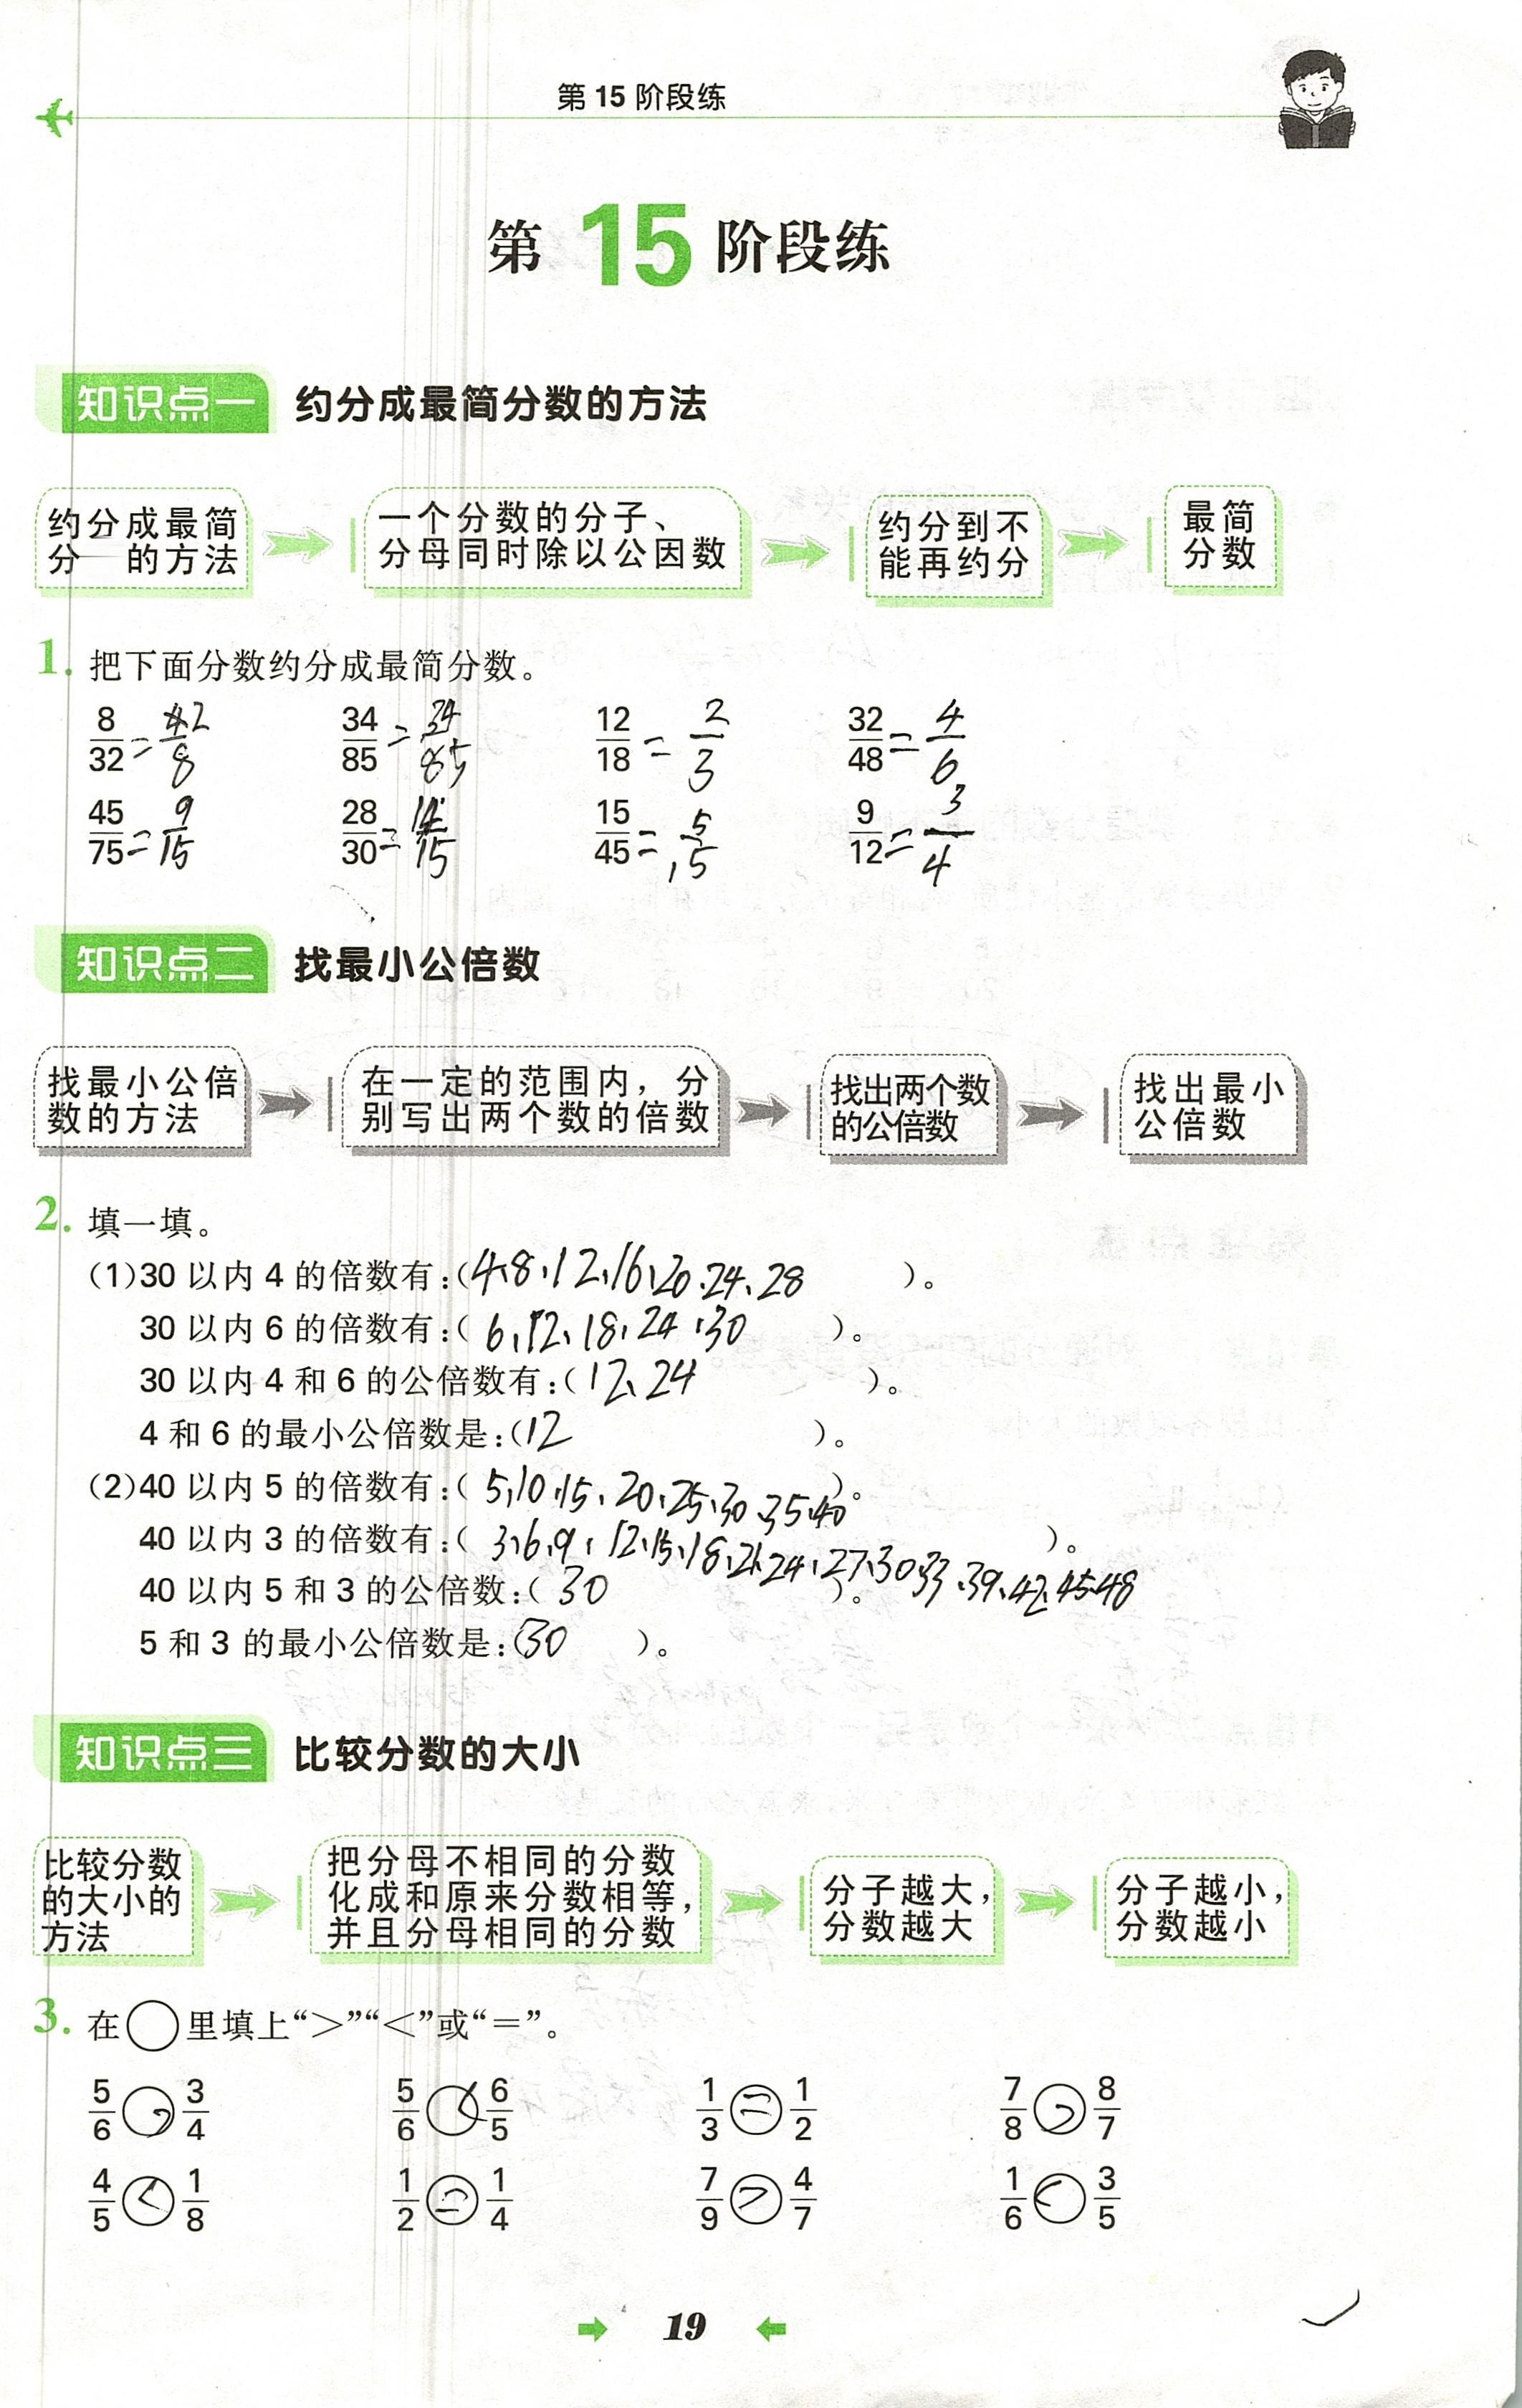 第 15 阶段练
第 15 阶段练
知识点一 约分成最简分数的方法
约分成最简分 的方法
一个分数的分子、分母同时除以公因数
约分到不能再约分
最简分数
1. 把下面分数约分成最简分数。
8/32 = 2/8 34/85 = 34/85 12/18 = 2/3 32/48 = 4/6
45/75 = 9/15 28/30 = 14/15 15/45 = 5/15 9/12 = 3/4
知识点二 找最小公倍数
找最小公倍数的方法
在一定的范围内，分别写出两个数的倍数
找出两个数的公倍数
找出最小公倍数
2. 填一填。
(1)30 以内 4 的倍数有:(4、8、12、16、20、24、28)。
30 以内 6 的倍数有:(6、12、18、24、30)。
30 以内 4 和 6 的公倍数有:(12、24)。
4 和 6 的最小公倍数是:(12)。
(2)40 以内 5 的倍数有:(5、10、15、20、25、30、35、40)。
40 以内 3 的倍数有:(3、6、9、12、15、18、21、24、27、30、33、39、42、45、48)。
40 以内 5 和 3 的公倍数:(30)。
5 和 3 的最小公倍数是:(30)。
知识点三 比较分数的大小
比较分数的大小的方法
把分母不相同的分数化成和原来分数相等，并且分母相同的分数
分子越大，分数越大
分子越小，分数越小
3. 在○里填上“>”“<”或“=”。
5/6 > 3/4 5/6 < 6/5 1/3 = 1/2 7/8 > 8/7
4/5 < 1/8 1/2 = 1/4 7/9 > 4/7 1/6 < 3/5
19